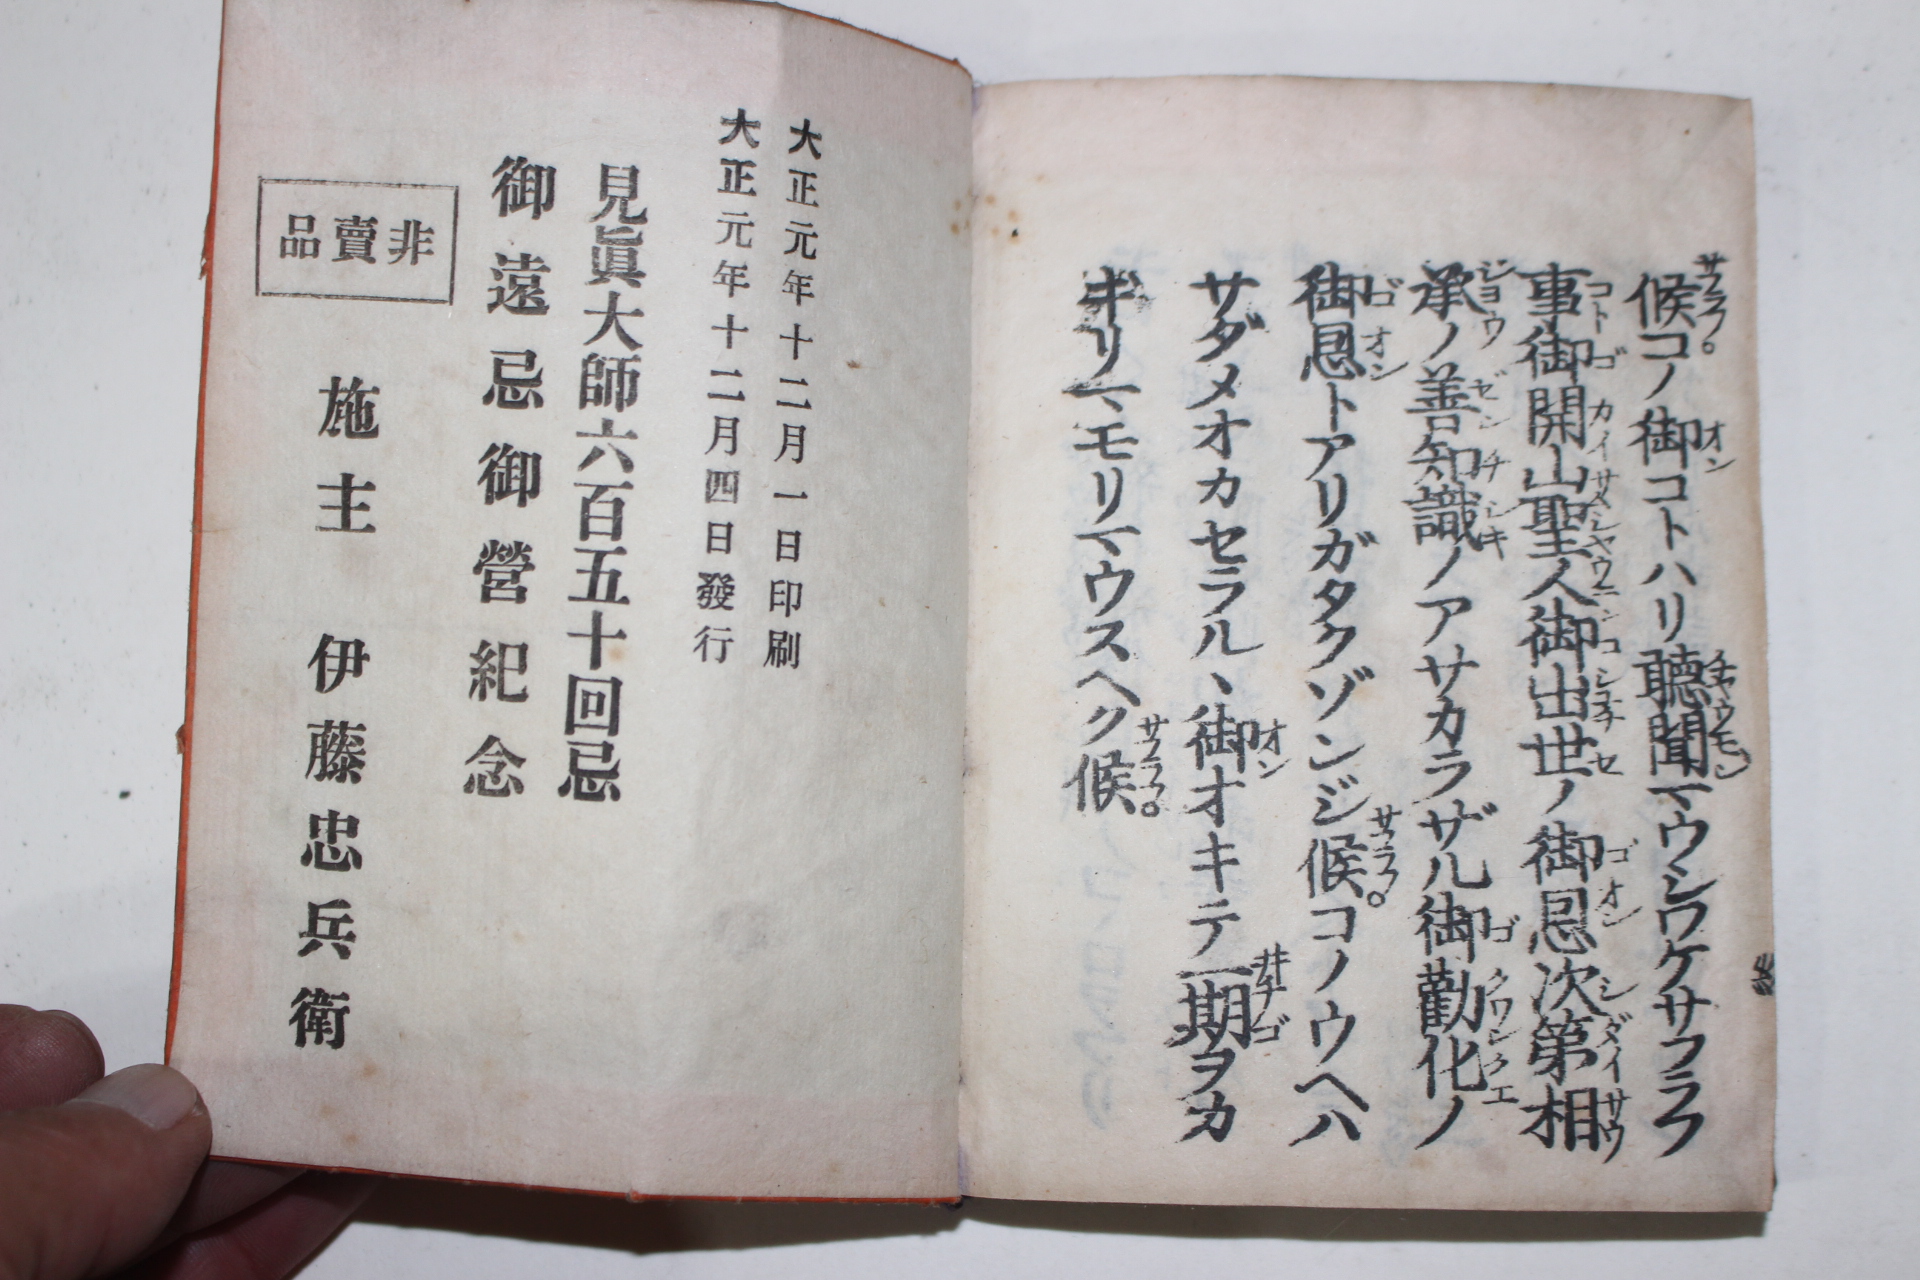 候コノ御コトハリ聽聞マウシワケサフラフ
事御開山聖人御出世ノ御恩次第相
承ノ善知識ノアサカラザル御勸化ノ
御恩トアリガタクゾンジ候コノウヘハ
サダメオカセラルヽ御オキテ一期ヲカ
ギリマモリマウスヘク候
大正元年十二月一日印刷
大正元年十二月四日發行
見眞大師六百五十回忌
御遠忌御營紀念
非賣品
施主 伊藤忠兵衛